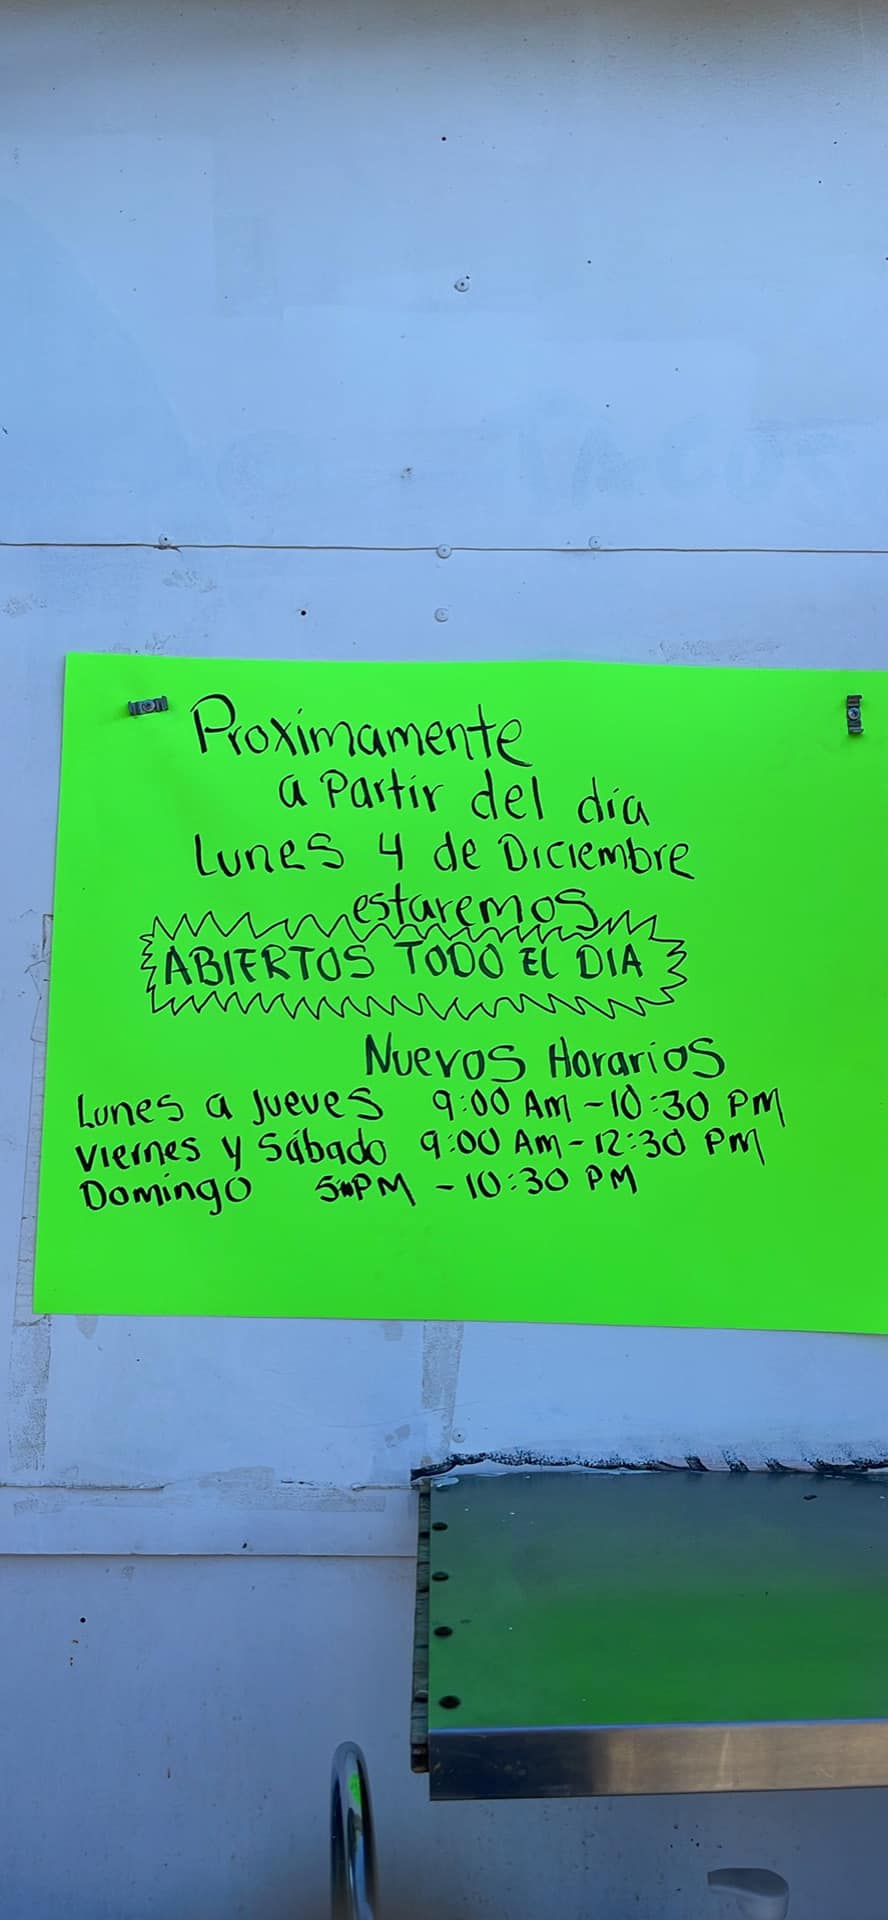 TACOS
Proximamente
a Partir del día
Lunes 4 de Diciembre
estaremos
ABIERTOS TODO EL DIA
Nuevos Horarios
Lunes a Jueves 9:00 Am - 10:30 PM
Viernes y Sábado 9:00 Am - 12:30 PM
Domingo 5 PM - 10:30 PM